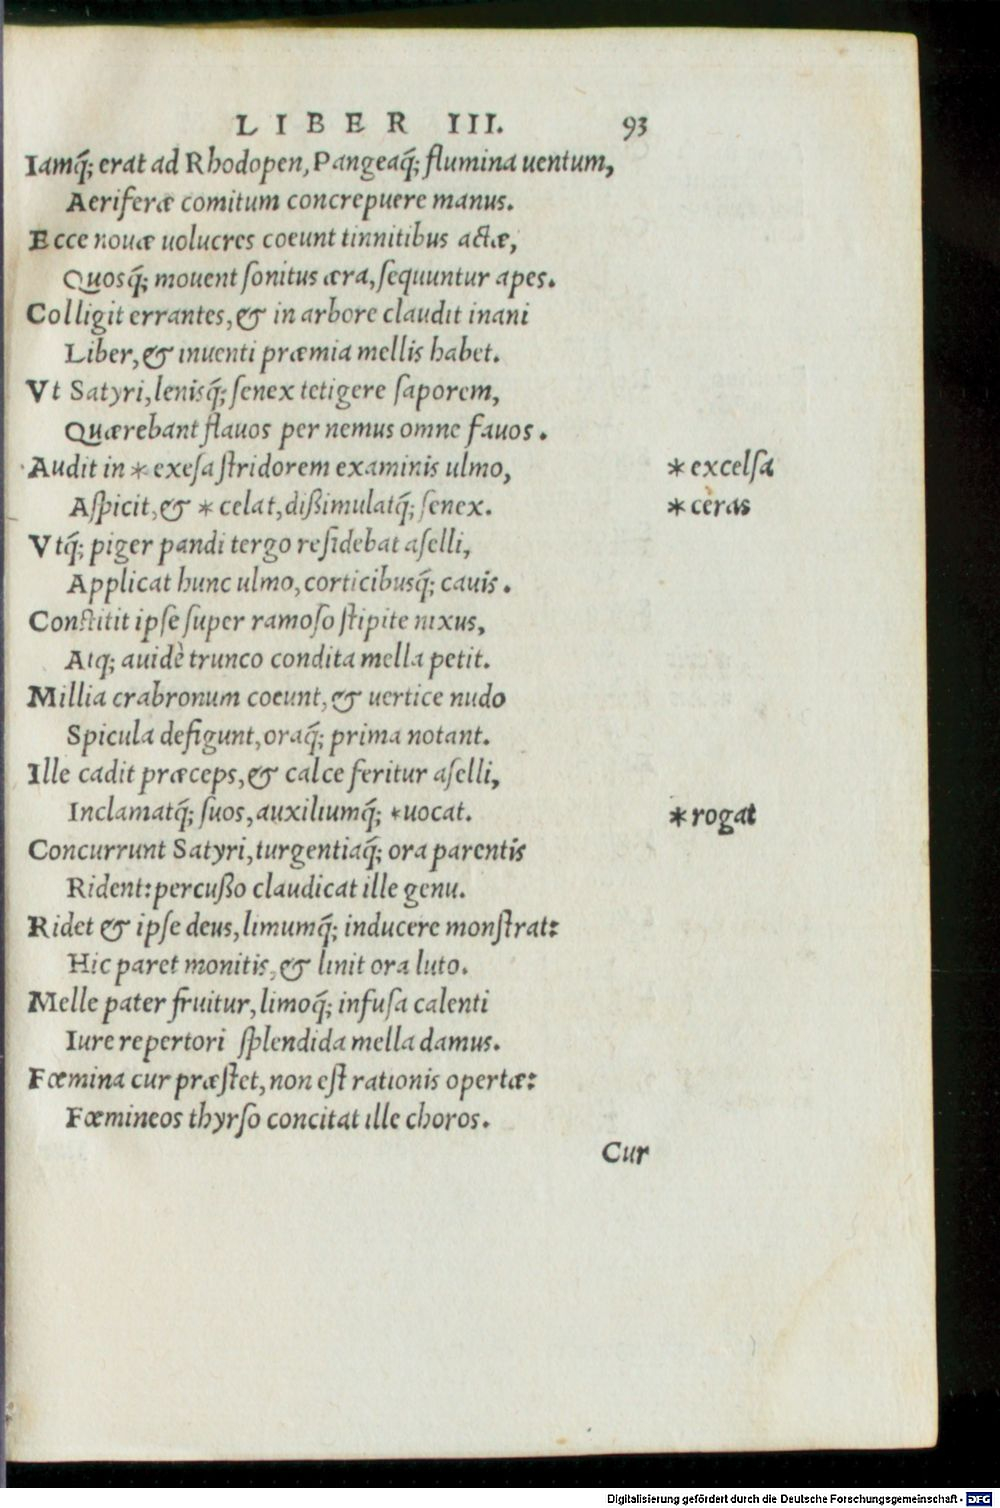 LIBER III. 93
Iamq́; erat ad Rhodopen, Pangeaq́; flumina uentum,
Aeriferæ comitum concrepuere manus.
Ecce nouæ uolucres coeunt tinnitibus actæ,
Quosq́; mouent ſonitus æra, ſequuntur apes.
Colligit errantes, & in arbore claudit inani
Liber, & inuenti præmia mellis habet.
Vt Satyri, lenisq́; ſenex tetigere ſaporem,
Quærebant flauos per nemus omne fauos.
Audit in * exeſa ſtridorem examinis ulmo, * excelſa
Aſpicit, & * celat, dißimulatq́; ſenex. * ceras
Vtq́; piger pandi tergo reſidebat aſelli,
Applicat hunc ulmo, corticibusq́; cauis.
Conſtitit ipſe ſuper ramoſo ſtipite nixus,
Atq; auidè trunco condita mella petit.
Millia crabronum coeunt, & uertice nudo
Spicula defigunt, oraq́; prima notant.
Ille cadit præceps, & calce feritur aſelli,
Inclamatq́; ſuos, auxiliumq́; *uocat. * rogat
Concurrunt Satyri, turgentiaq́; ora parentis
Rident: percußo claudicat ille genu.
Ridet & ipſe deus, limumq́; inducere monſtrat:
Hic paret monitis, & linit ora luto.
Melle pater fruitur, limoq́; infuſa calenti
Iure repertori ſplendida mella damus.
Fœmina cur præſtet, non eſt rationis opertæ:
Fœmineos thyrſo concitat ille choros.
Cur
Digitalisierung gefördert durch die Deutsche Forschungsgemeinschaft - DFG